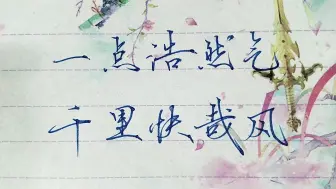 一点浩然气
千里快哉风